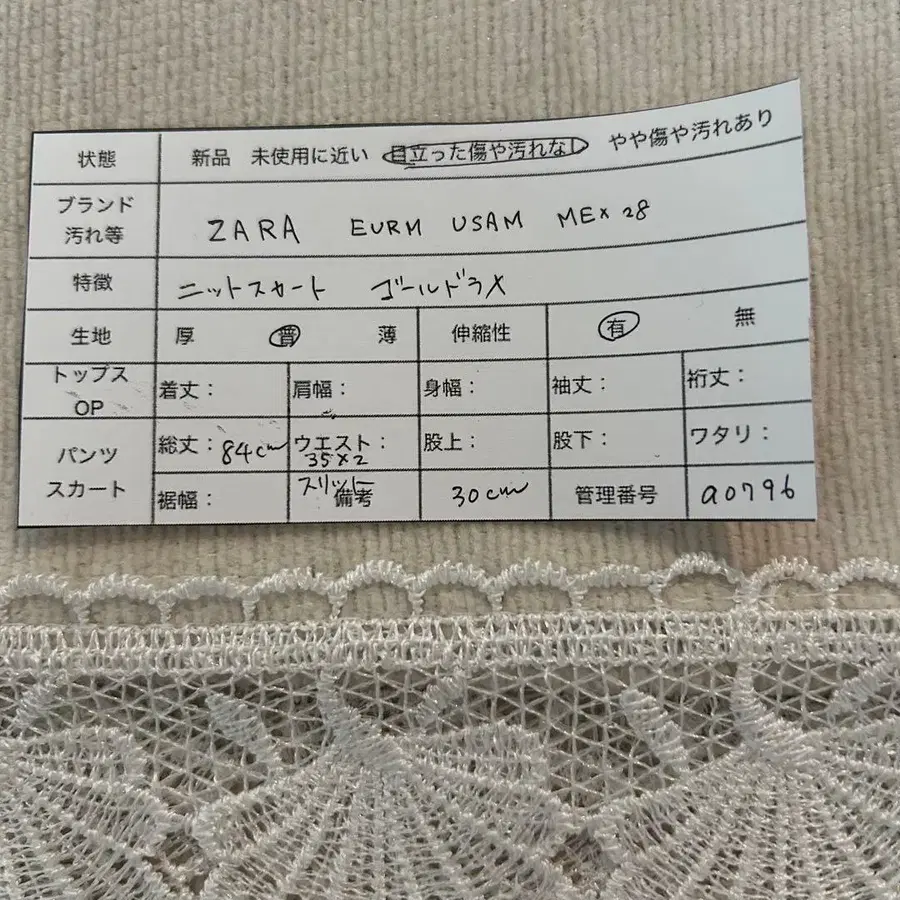 状態 新品 未使用に近い 目立った傷や汚れなし やや傷や汚れあり
ブランド
汚れ等 ZARA EURM USAM MEX 28
特徴 ニットスカート ゴールドラメ
生地 厚 普 薄 伸縮性 有 無
トップス
OP 着丈: 肩幅: 身幅: 袖丈: 裄丈:
パンツ
スカート 総丈: 84cm ウエスト: 35×2 股上: 股下: ワタリ:
裾幅: スリット 備考 30cm 管理番号 a0796